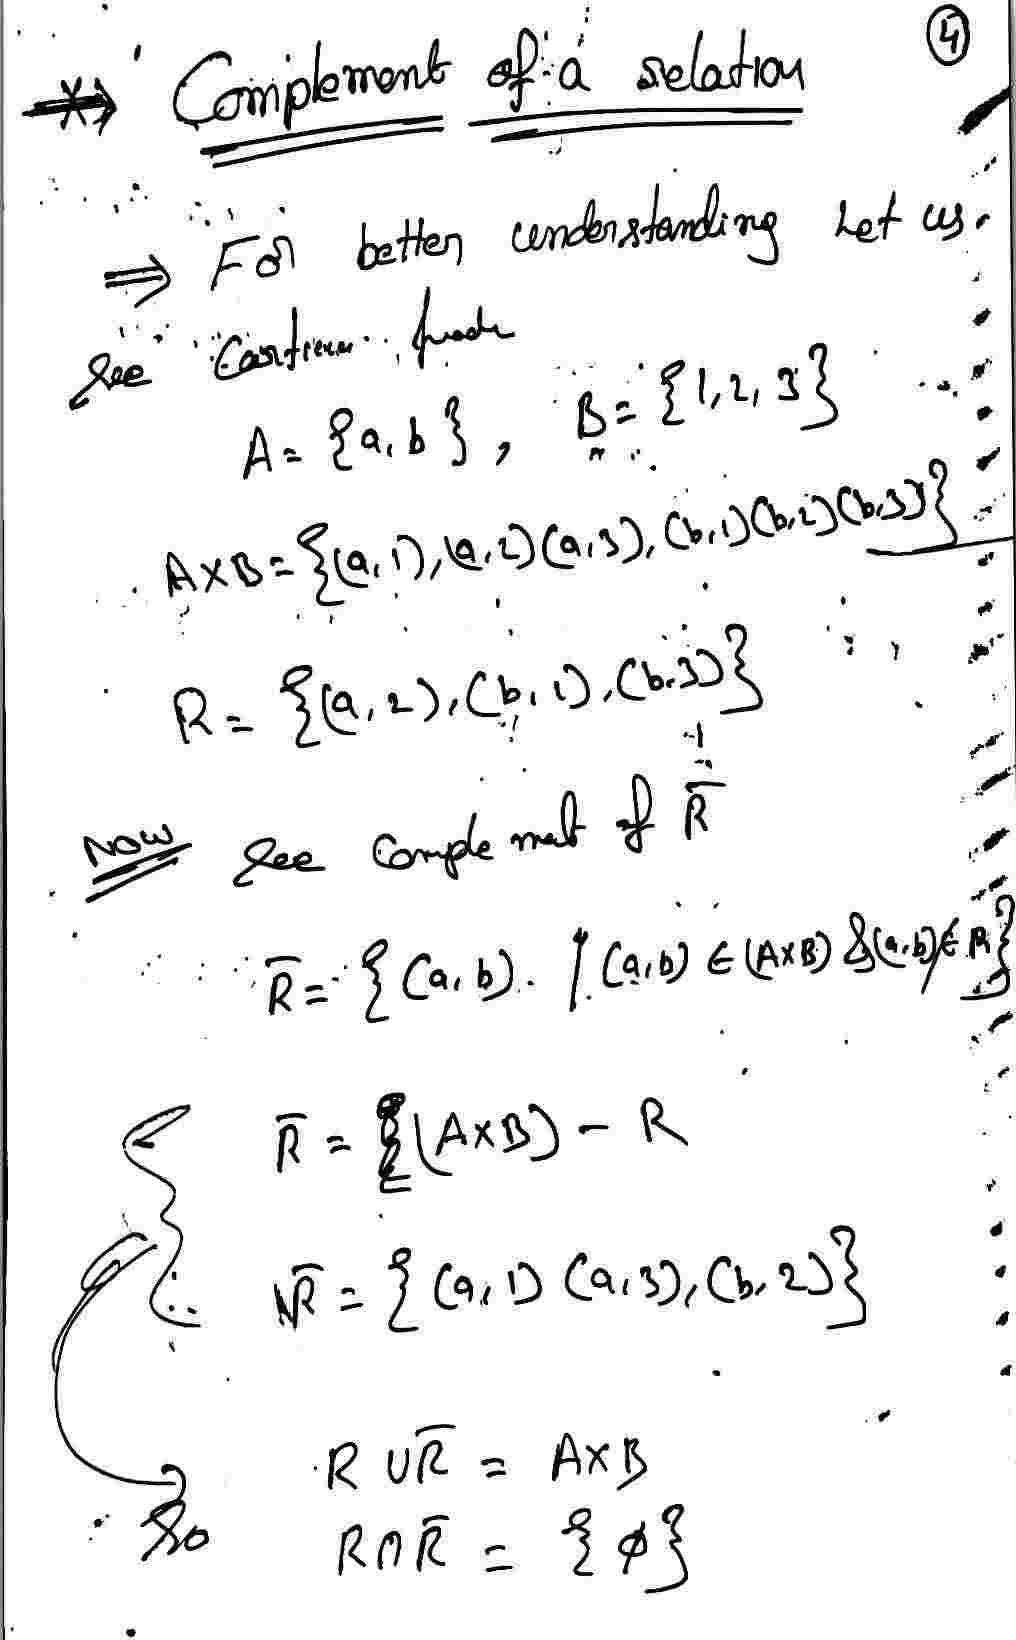 4
Complement of a relation
⇒ For better understanding Let us
see Cartesian
A = {a, b}, B = {1, 2, 3}
A×B = {(a, 1), (a, 2) (a, 3), (b, 1) (b, 2) (b, 3)}
R = {(a, 2), (b, 1), (b, 3)}
Now see complement of R̅
R̅ = {(a, b) / (a, b) ∈ (A×B) & (a, b) ∉ R}
R̅ = (A×B) - R
R̅ = {(a, 1) (a, 3), (b, 2)}
R ∪ R̅ = A×B
So R ∩ R̅ = {ϕ}